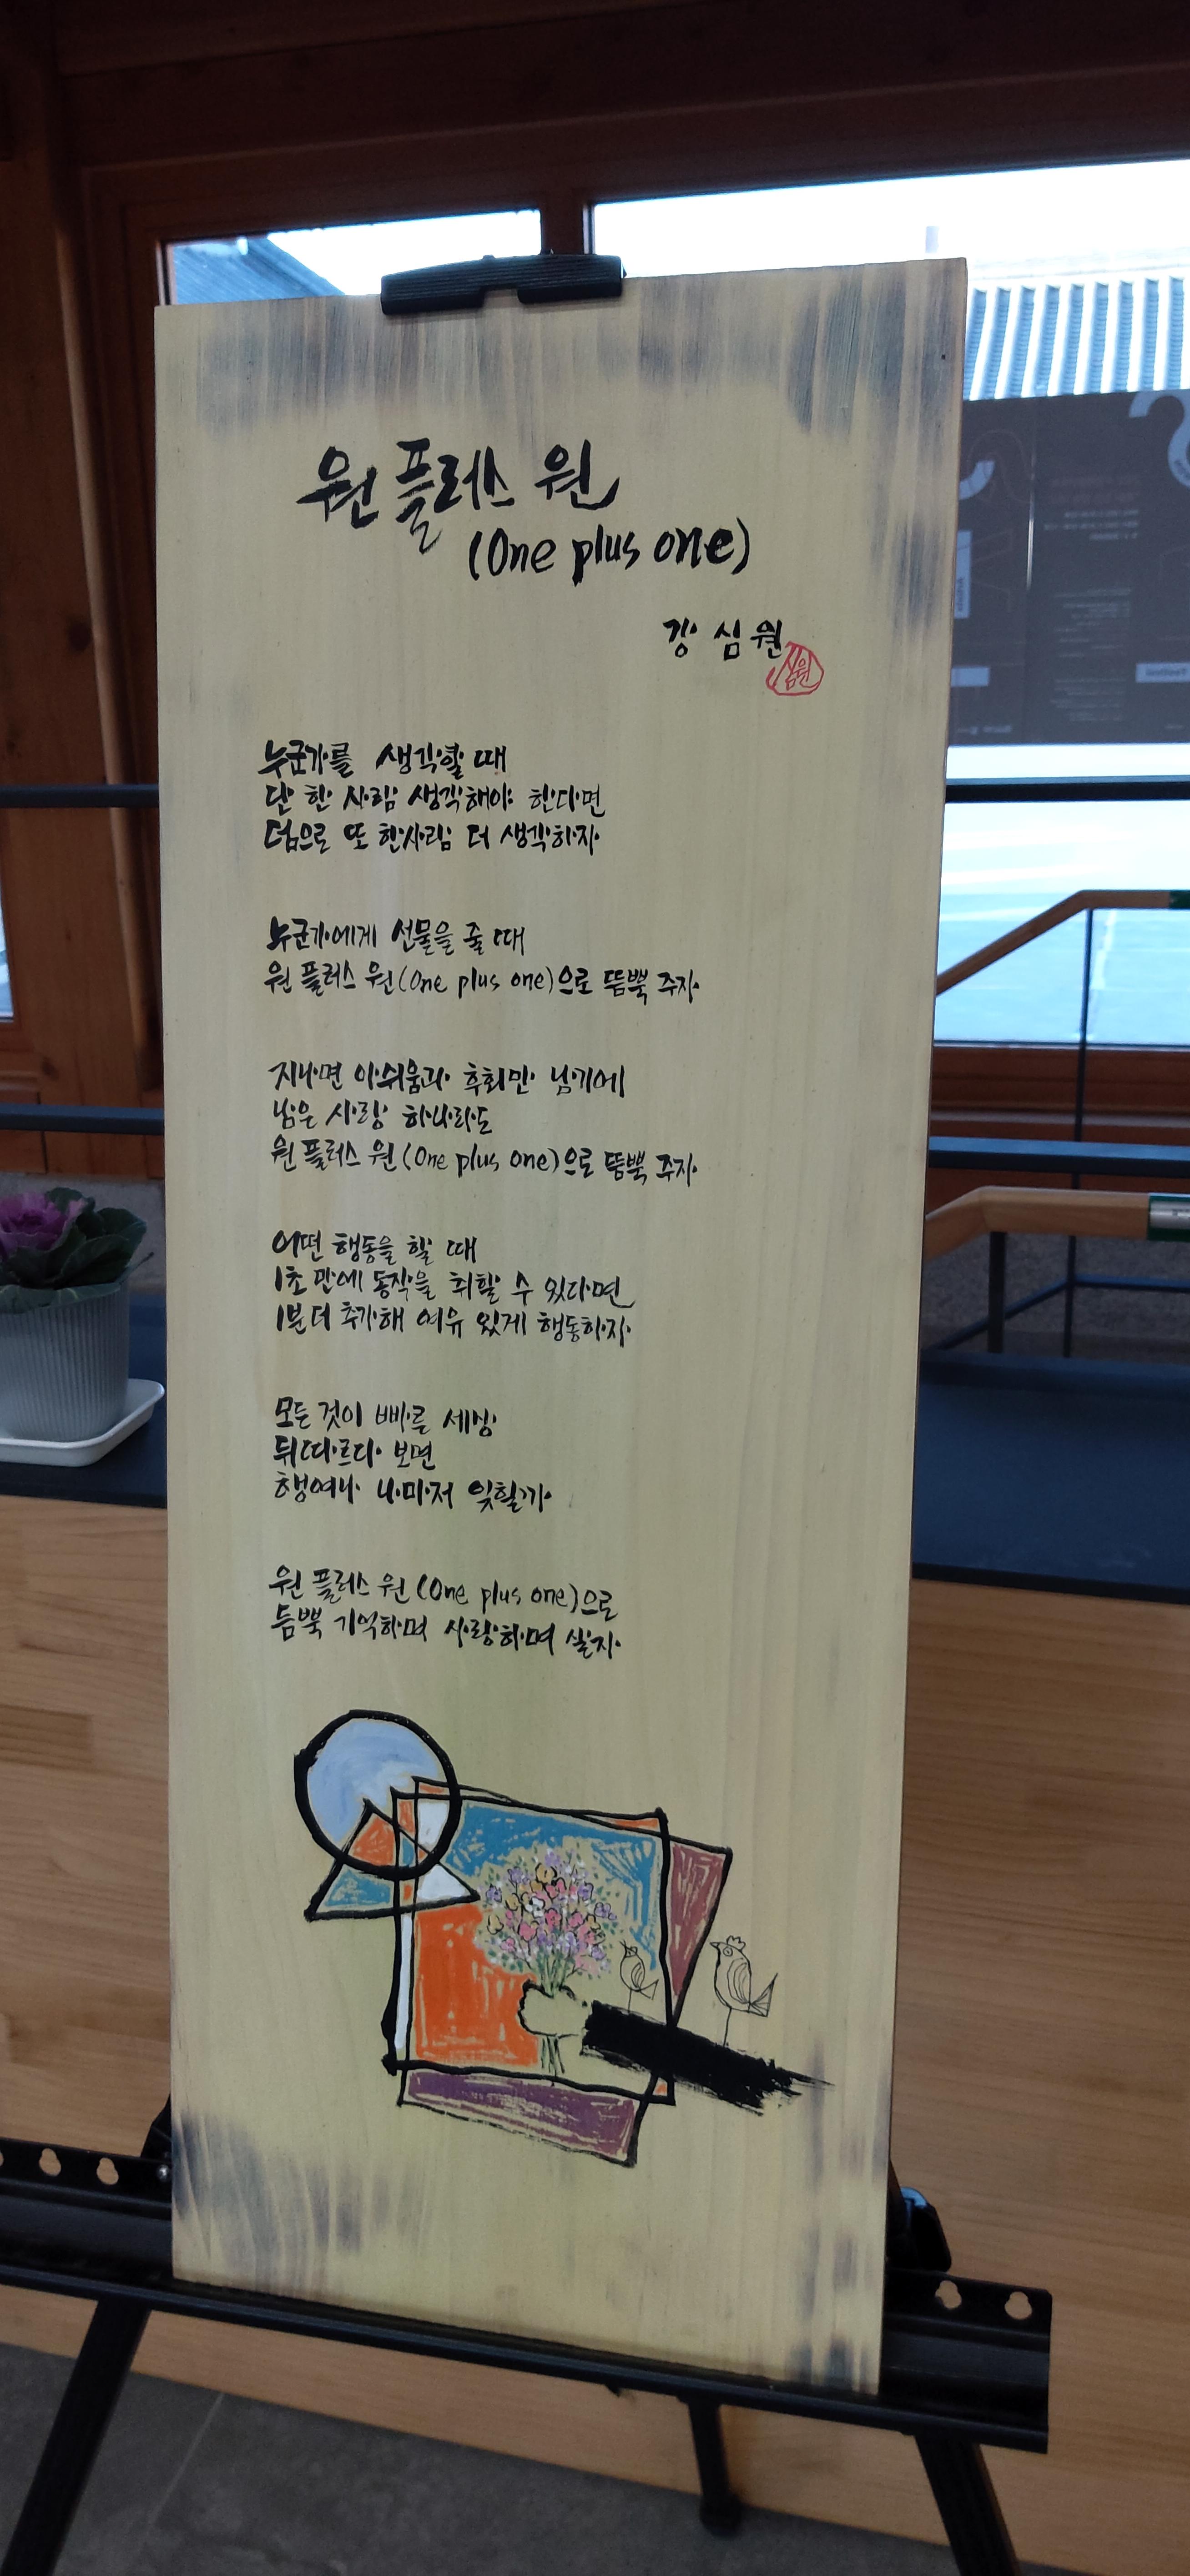 원 플러스 원
(One plus one)
강 심 원
심원
누군가를 생각할 때
단 한 사람 생각해야 한다면
덤으로 또 한사람 더 생각하자
누군가에게 선물을 줄 때
원 플러스 원(One plus one)으로 뜸뿍 주자
지나면 아쉬움과 후회만 남기에
남은 사랑 하나라도
원 플러스 원(One plus one)으로 뜸뿍 주자
어떤 행동을 할 때
1초 만에 동작을 취할 수 있다면
1분 더 추가해 여유 있게 행동하자
모든 것이 빠른 세상
뒤따르다 보면
행여나 나마저 잊힐까
원 플러스 원(One plus one)으로
듬뿍 기억하며 사랑하며 살자